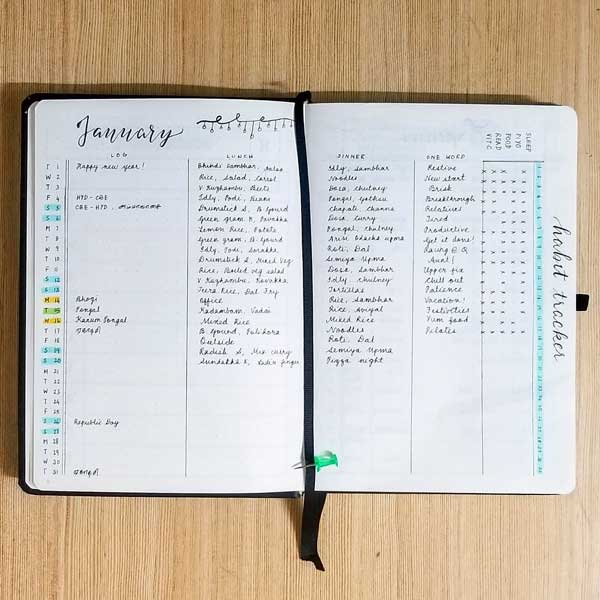 January
LOG LUNCH
T 1 Happy new year! Bhindi Sambhar,
W 2 Rice, Salad, Carrot
T 3 V Kuzhambu, Beets
F 4 HYD - CBE Idly, Podi, Beans
S 5 CBE - HYD, Drumstick S, B. Gourd
S 6 Green gram K, Pavakka
M 7 Lemon Rice, Potato
T 8 Green gram, B. Gourd
W 9 Idly, Podi, Sorakka
T 10 Drumstick S, Mixed Veg
F 11 Rice, Boiled veg salad
S 12 V Kuzhambu, Kovakka
S 13 Jeera Rice, Dal Fry
M 14 Bhogi Office
T 15 Pongal Kadambam, Vadai
W 16 Kanum Pongal Mixed Rice
T 17 B. Gourd, Pulihora
F 18 Outside
S 19 Radish S, Mix curry
S 20 Sundakka K,
M 21
T 22
W 23
T 24
F 25
S 26 Republic Day
S 27
M 28
T 29
W 30
T 31
DINNER ONE WORD
SLEEP
PIYO
FOOD
READ
VIT C
Idly, Sambhar Festive
Noodles New start
Dosa, Chutney Brisk
Pongal, Gothsu Breakthrough
Chapati, Channa Relatives
Dosa, Curry Tired
Pongal, Chutney Productive
Arisi Upma Get it done!
Roti, Dal
Semiya Upma Aunt!
Dosa, Sambhar Upper fix
Idly, chutney Chill out
Tortillas Patience
Rice, Sambhar Vacation!
Rice, Aviyal Festivities
Mixed Rice Yum food
Noodles Pilates
Roti, Dal
Semiya Upma
Pizza night
habit tracker